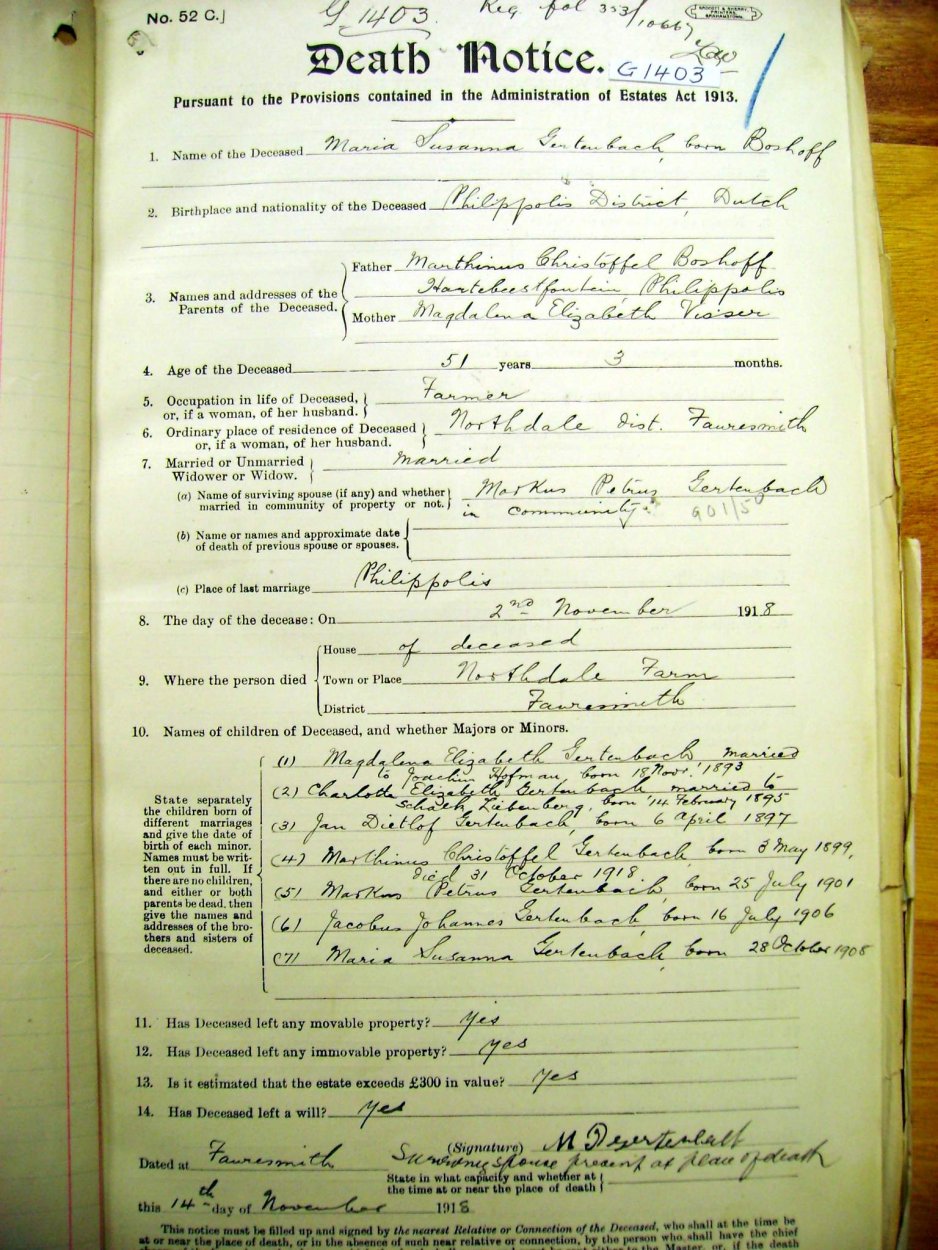 No. 52 C.]
G. 1403.
Reg. fol 353/10667
BROCOTT & SHERRY
PRINTERS,
GRAHAMSTOWN.
Death Notice.
G1403
Pursuant to the Provisions contained in the Administration of Estates Act 1913.
1. Name of the Deceased Maria Susanna Gertenbach, born Boshoff
2. Birthplace and nationality of the Deceased Philippolis District, Dutch
3. Names and addresses of the Parents of the Deceased.
Father Marthinus Christoffel Boshoff
Hartebeestfontein Philippolis
Mother Magdalena Elizabeth Visser
4. Age of the Deceased 51 years 3 months.
5. Occupation in life of Deceased, or, if a woman, of her husband. Farmer
6. Ordinary place of residence of Deceased or, if a woman, of her husband. Northdale dist. Fauresmith
7. Married or Unmarried Widower or Widow. Married
(a) Name of surviving spouse (if any) and whether married in community of property or not. Markus Petrus Gertenbach
in community
(b) Name or names and approximate date of death of previous spouse or spouses.
(c) Place of last marriage Philippolis
8. The day of the decease: On 2nd November 1918
9. Where the person died
House of deceased
Town or Place Northdale Farm
District Fauresmith
10. Names of children of Deceased, and whether Majors or Minors.
State separately
the children born of
different marriages
and give the date of
birth of each minor.
Names must be writ-
ten out in full. If
there are no children,
and either or both
parents be dead, then
give the names and
addresses of the bro-
thers and sisters of
deceased.
(1) Magdalena Elizabeth Gertenbach married
to Joachim Hofman, born 18 Nov. 1893
(2) Charlotta Elizabeth Gertenbach married to
Schalk Liebenberg, born 14 February 1895
(3) Jan Dietlof Gertenbach, born 6 April 1897
(4) Marthinus Christoffel Gertenbach, born 3 May 1899,
died 31 October 1918
(5) Markus Petrus Gertenbach, born 25 July 1901
(6) Jacobus Johannes Gertenbach, born 16 July 1906
(7) Maria Susanna Gertenbach, born 28 October 1908
11. Has Deceased left any movable property? Yes
12. Has Deceased left any immovable property? Yes
13. Is it estimated that the estate exceeds £300 in value? Yes
14. Has Deceased left a will? Yes
(Signature)
Dated at Fauresmith
Surviving spouse present at place of death
State in what capacity and whether at
the time at or near the place of death
this 14th day of November 1918
This notice must be filled up and signed by the nearest Relative or Connection of the Deceased, who shall at the time be
at or near the place of death, or in the absence of such near relative or connection, by the person who shall have the chief